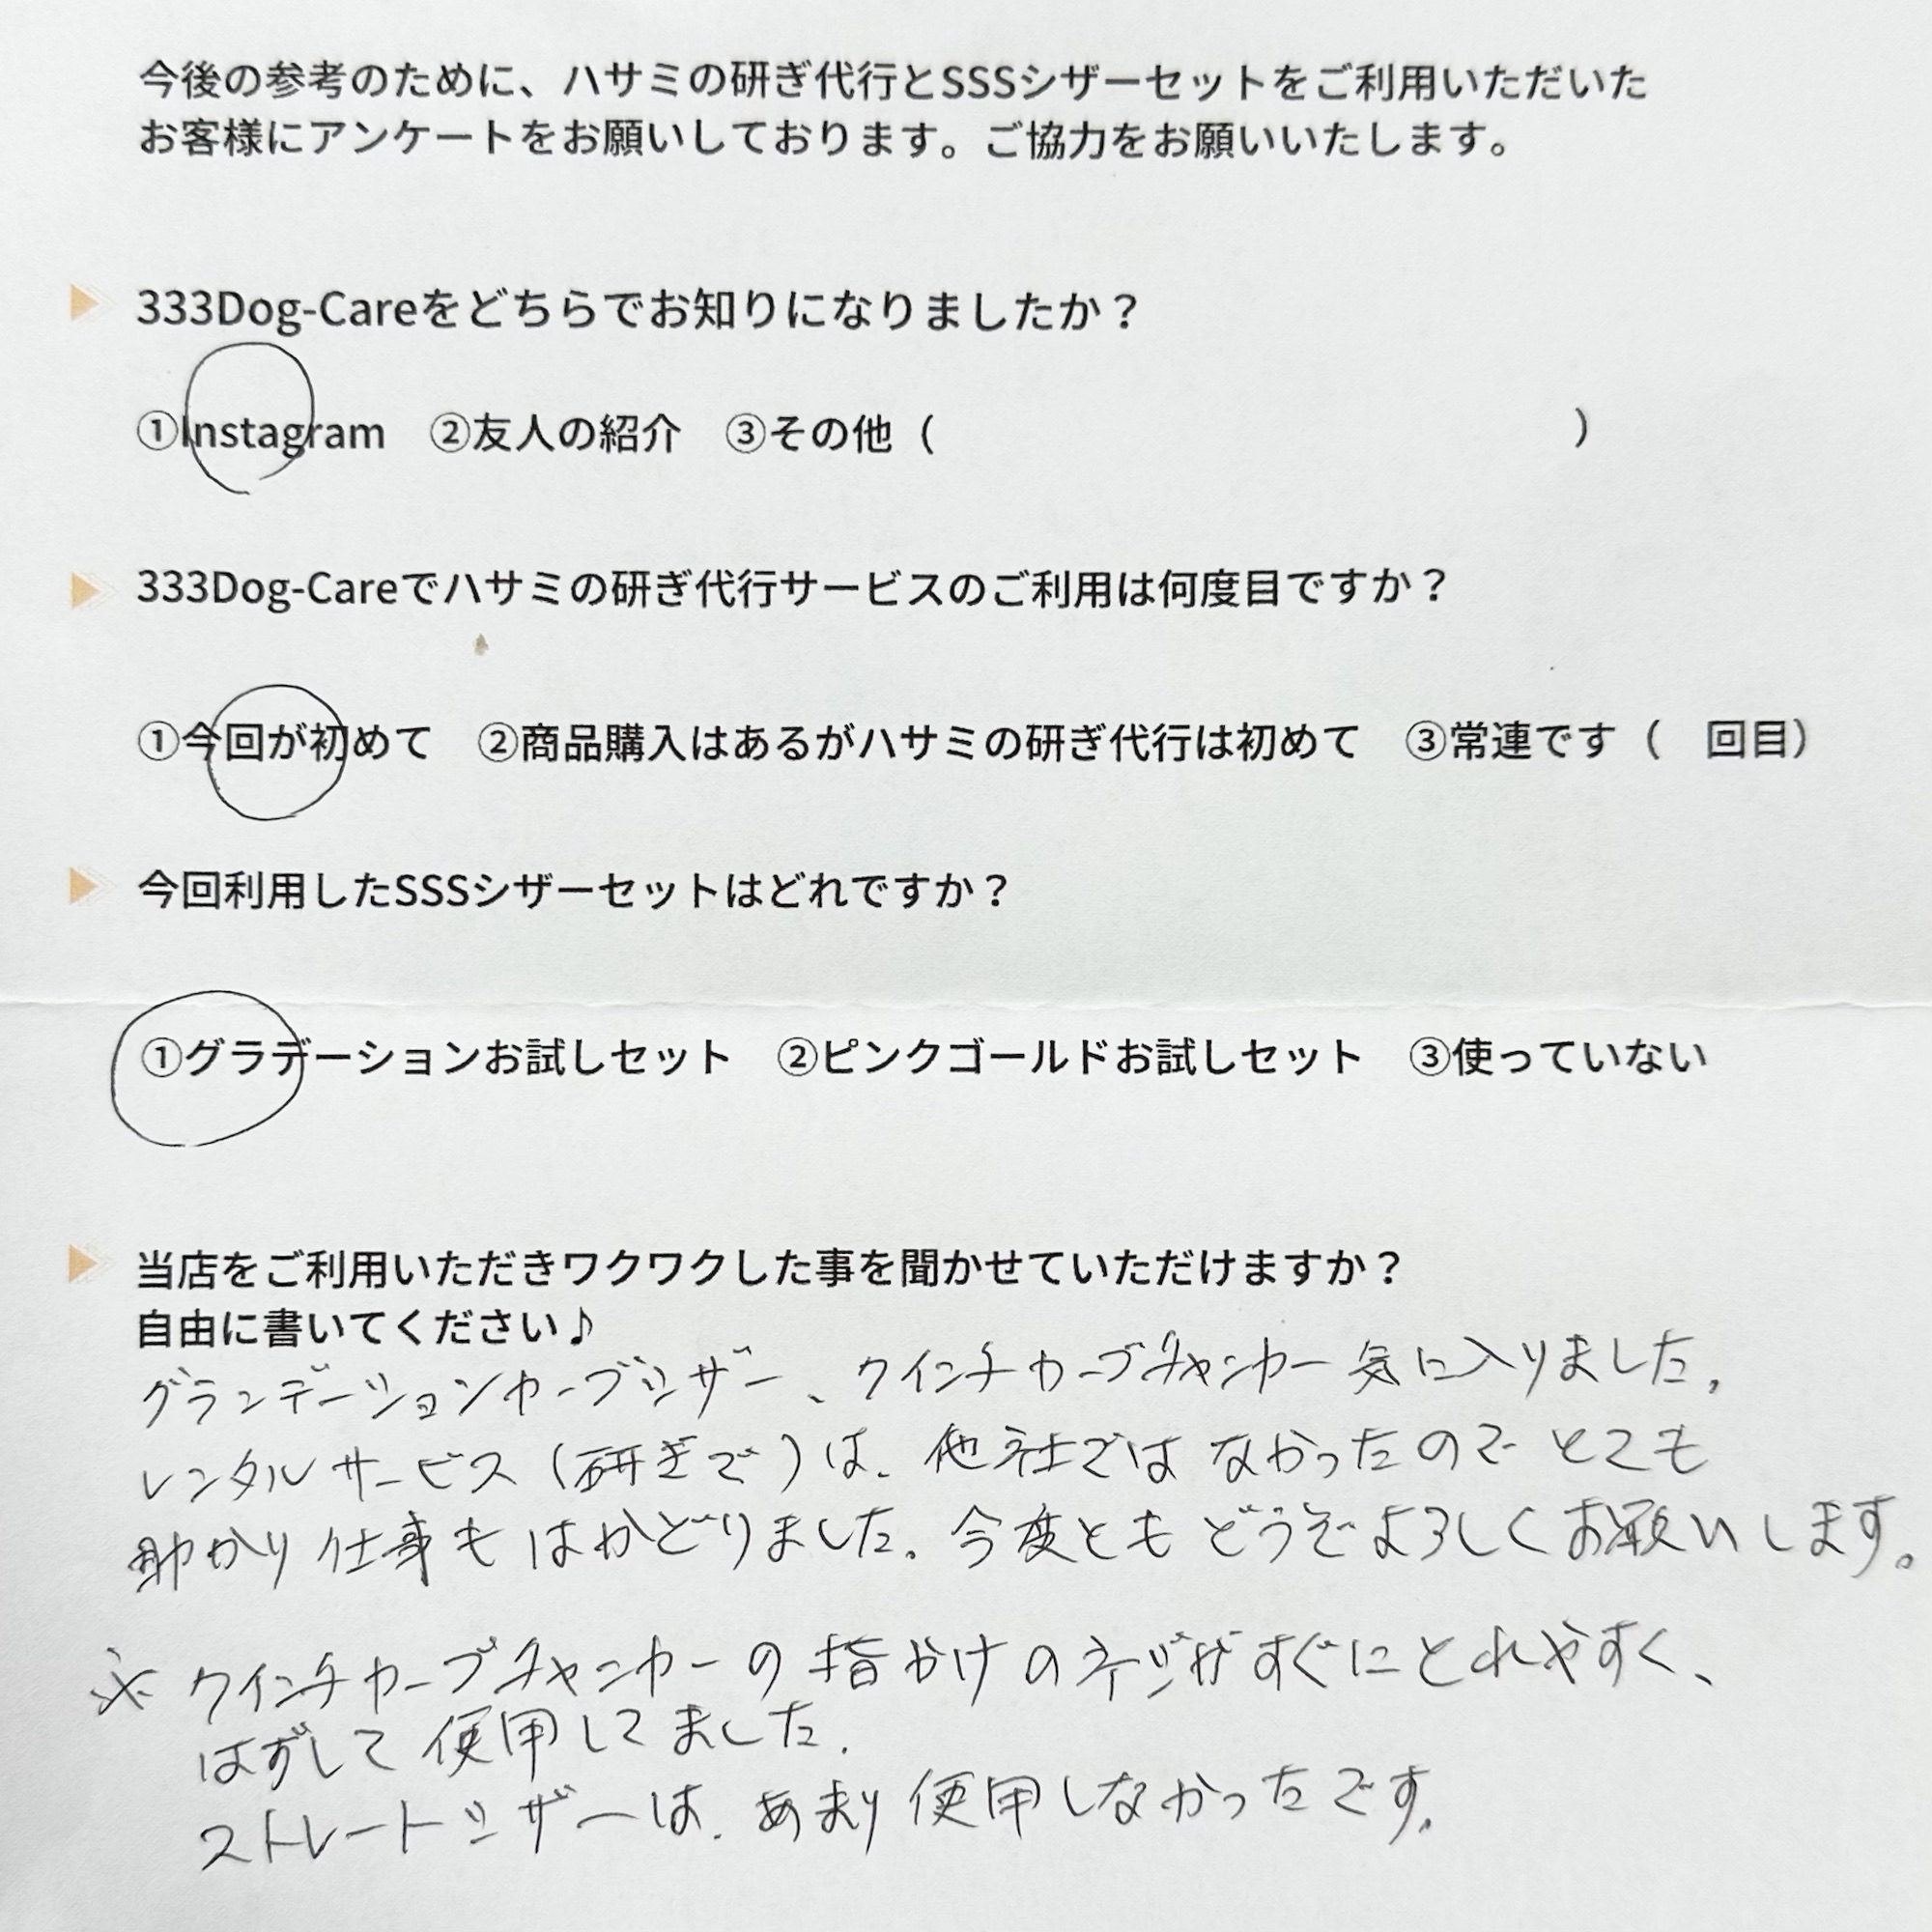 今後の参考のために、ハサミの研ぎ代行とSSSシザーセットをご利用いただいた
お客様にアンケートをお願いしております。ご協力をお願いいたします。
333Dog-Careをどちらでお知りになりましたか？
①Instagram　②友人の紹介　③その他（　　　　　　　　　　　　　　　）
333Dog-Careでハサミの研ぎ代行サービスのご利用は何度目ですか？
①今回が初めて　②商品購入はあるがハサミの研ぎ代行は初めて　③常連です（　回目）
今回利用したSSSシザーセットはどれですか？
①グラデーションお試しセット　②ピンクゴールドお試しセット　③使っていない
当店をご利用いただきワクワクした事を聞かせていただけますか？
自由に書いてください♪
グランデーションカーブシザー、クインチカーブチャンカー気に入りました。
レンタルサービス（研ぎで）は、他社ではなかったのでとても
助かり仕事もはかどりました。今度ともどうぞよろしくお願いします。
※クインチカーブチャンカーの指かけのネジがすぐにとれやすく、
はずして使用してました。
ストレートシザーは、あまり使用しなかったです。